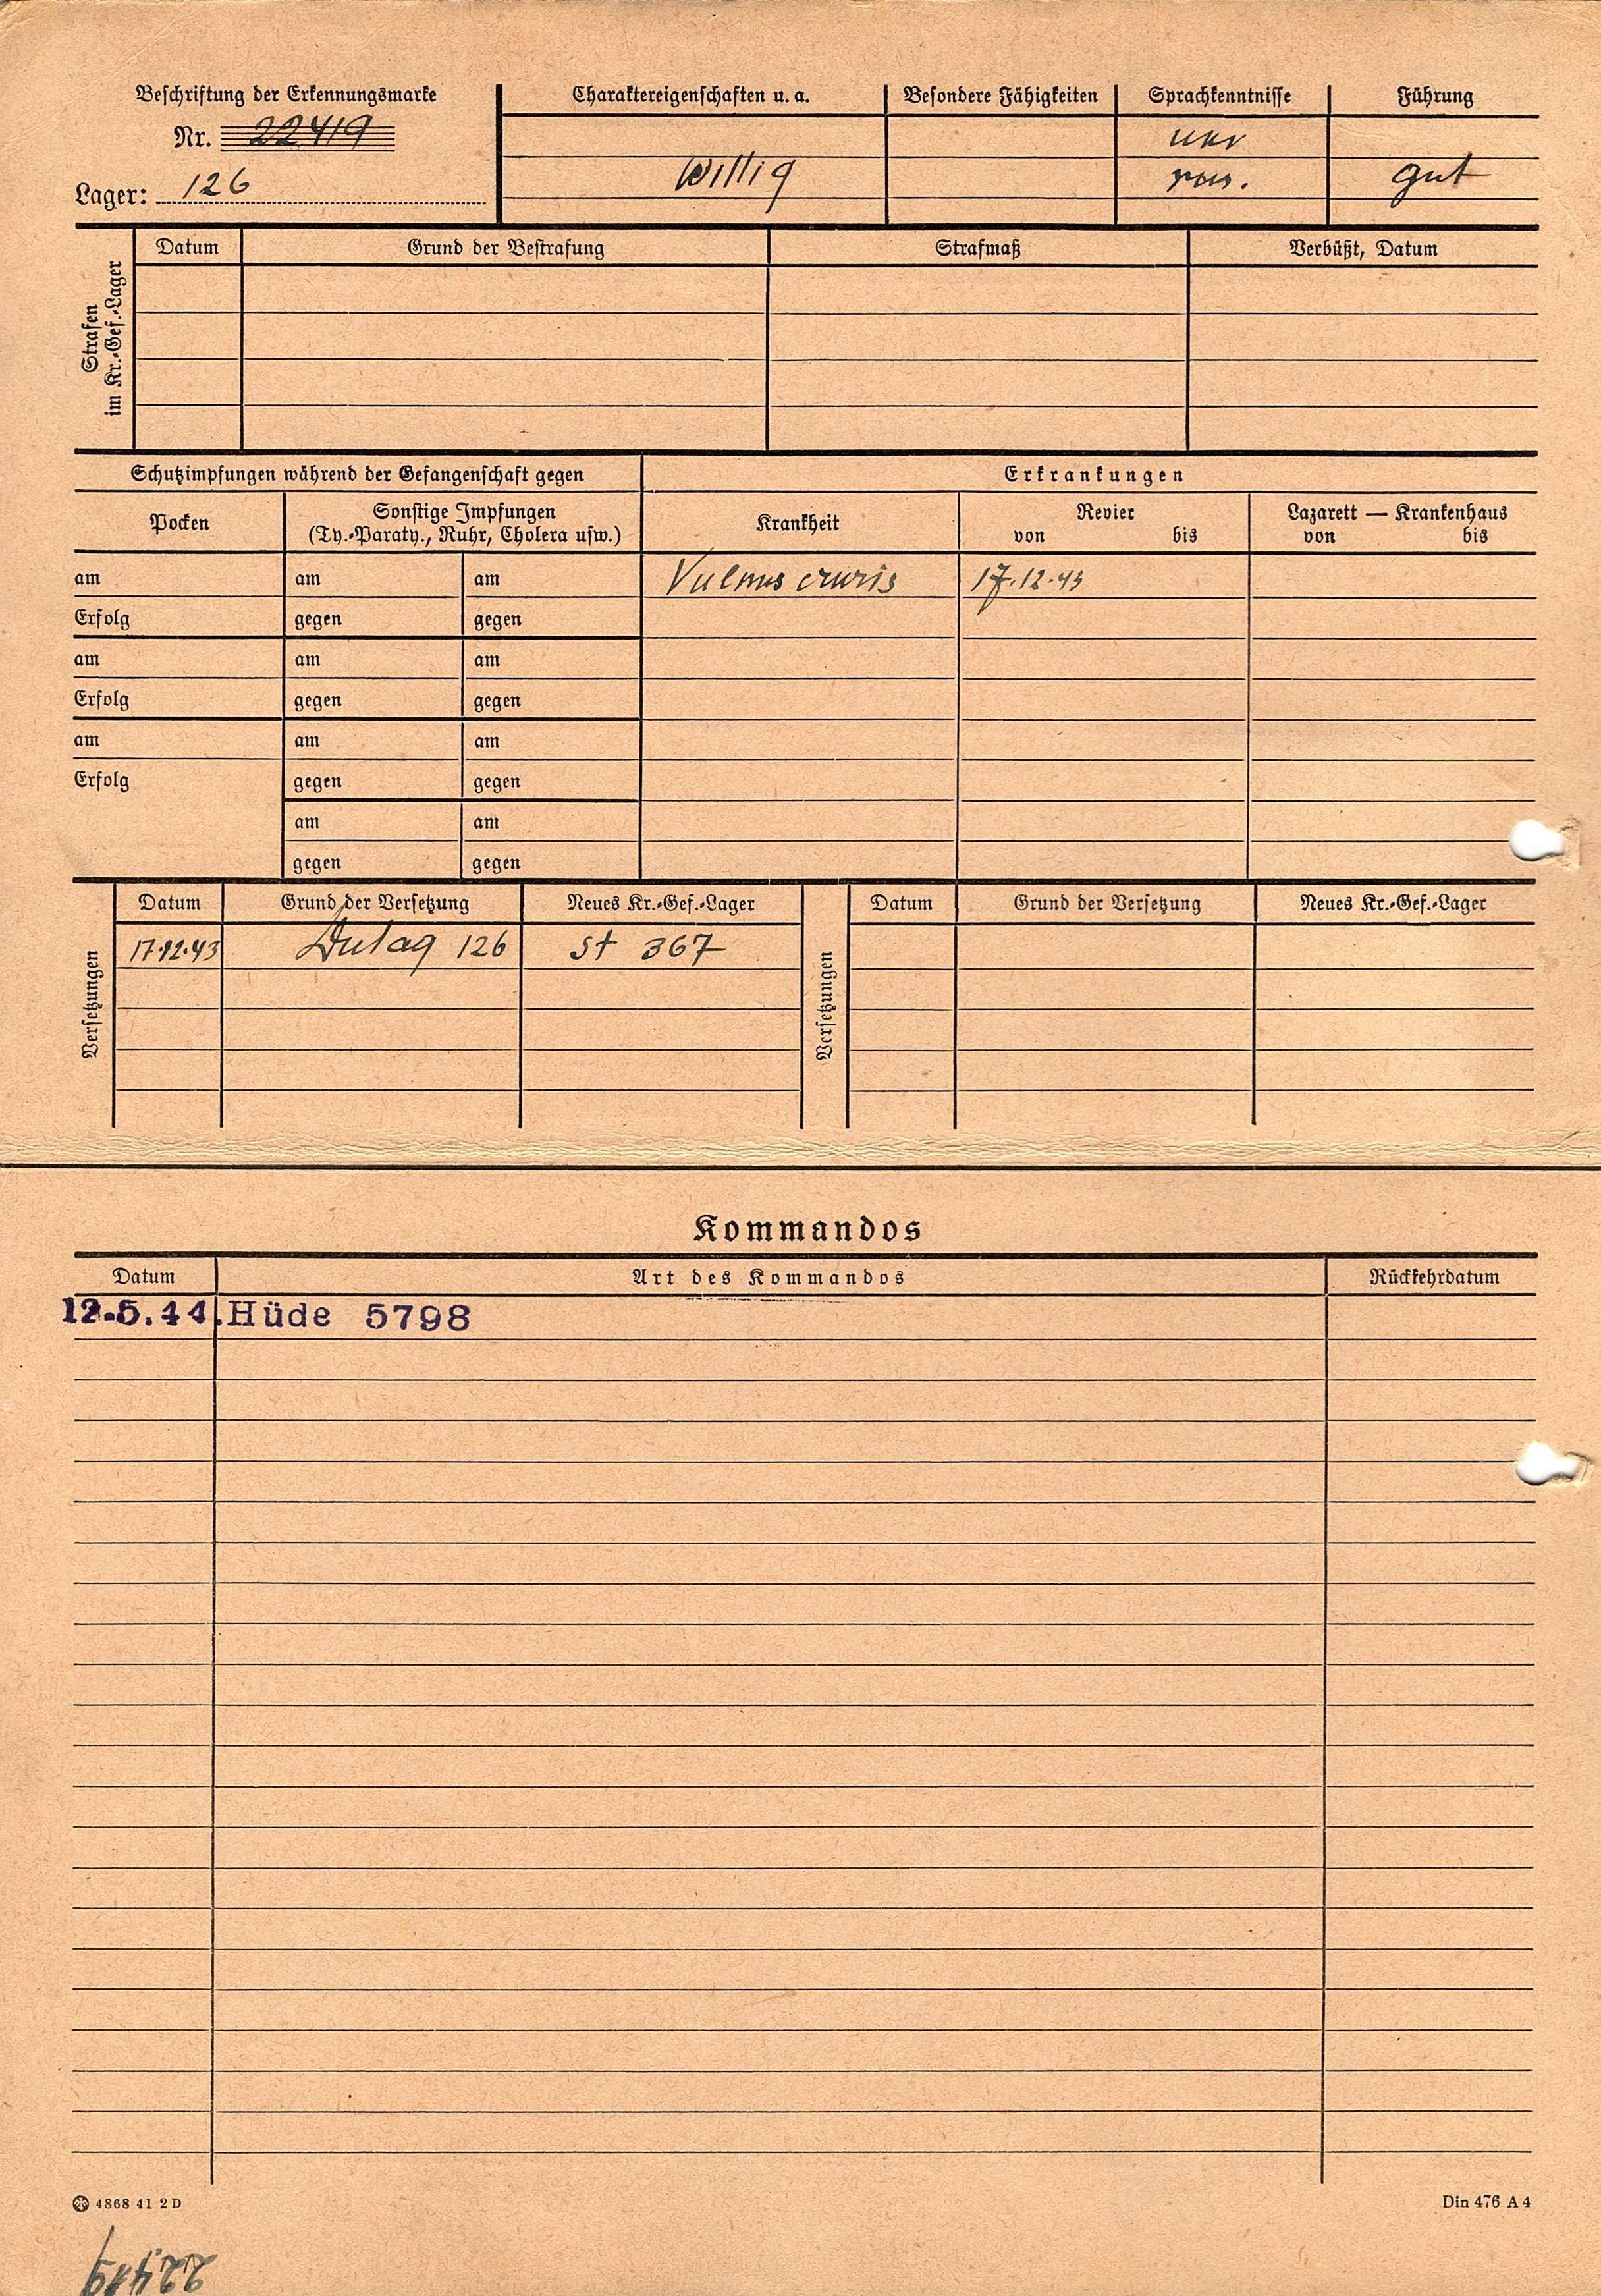 Beschriftung der Erkennungsmarke
Nr. 22419
Lager: 126
Charaktereigenschaften u. a.
Willig
Besondere Fähigkeiten
Sprachkenntnisse
ukr
rus.
Führung
gut
Strafen
im Kr.-Gef.-Lager
Datum Grund der Bestrafung Strafmaß Verbüßt, Datum
Schutzimpfungen während der Gefangenschaft gegen
Erkrankungen
Pocken
Sonstige Impfungen
(Ty.-Paraty., Ruhr, Cholera usw.)
Krankheit
Revier
von bis
Lazarett — Krankenhaus
von bis
am am am Vulnus cruris 17.12.43
Erfolg gegen gegen
am am am
Erfolg gegen gegen
am am am
Erfolg gegen gegen
am am
gegen gegen
Versetzungen
Datum Grund der Versetzung Neues Kr.-Gef.-Lager
17.12.43 Dulag 126 St 367
Versetzungen
Datum Grund der Versetzung Neues Kr.-Gef.-Lager
Kommandos
Datum Art des Kommandos Rückkehrdatum
12.5.44. Hüde 5798
4868 41 2 D
Din 476 A 4
22419